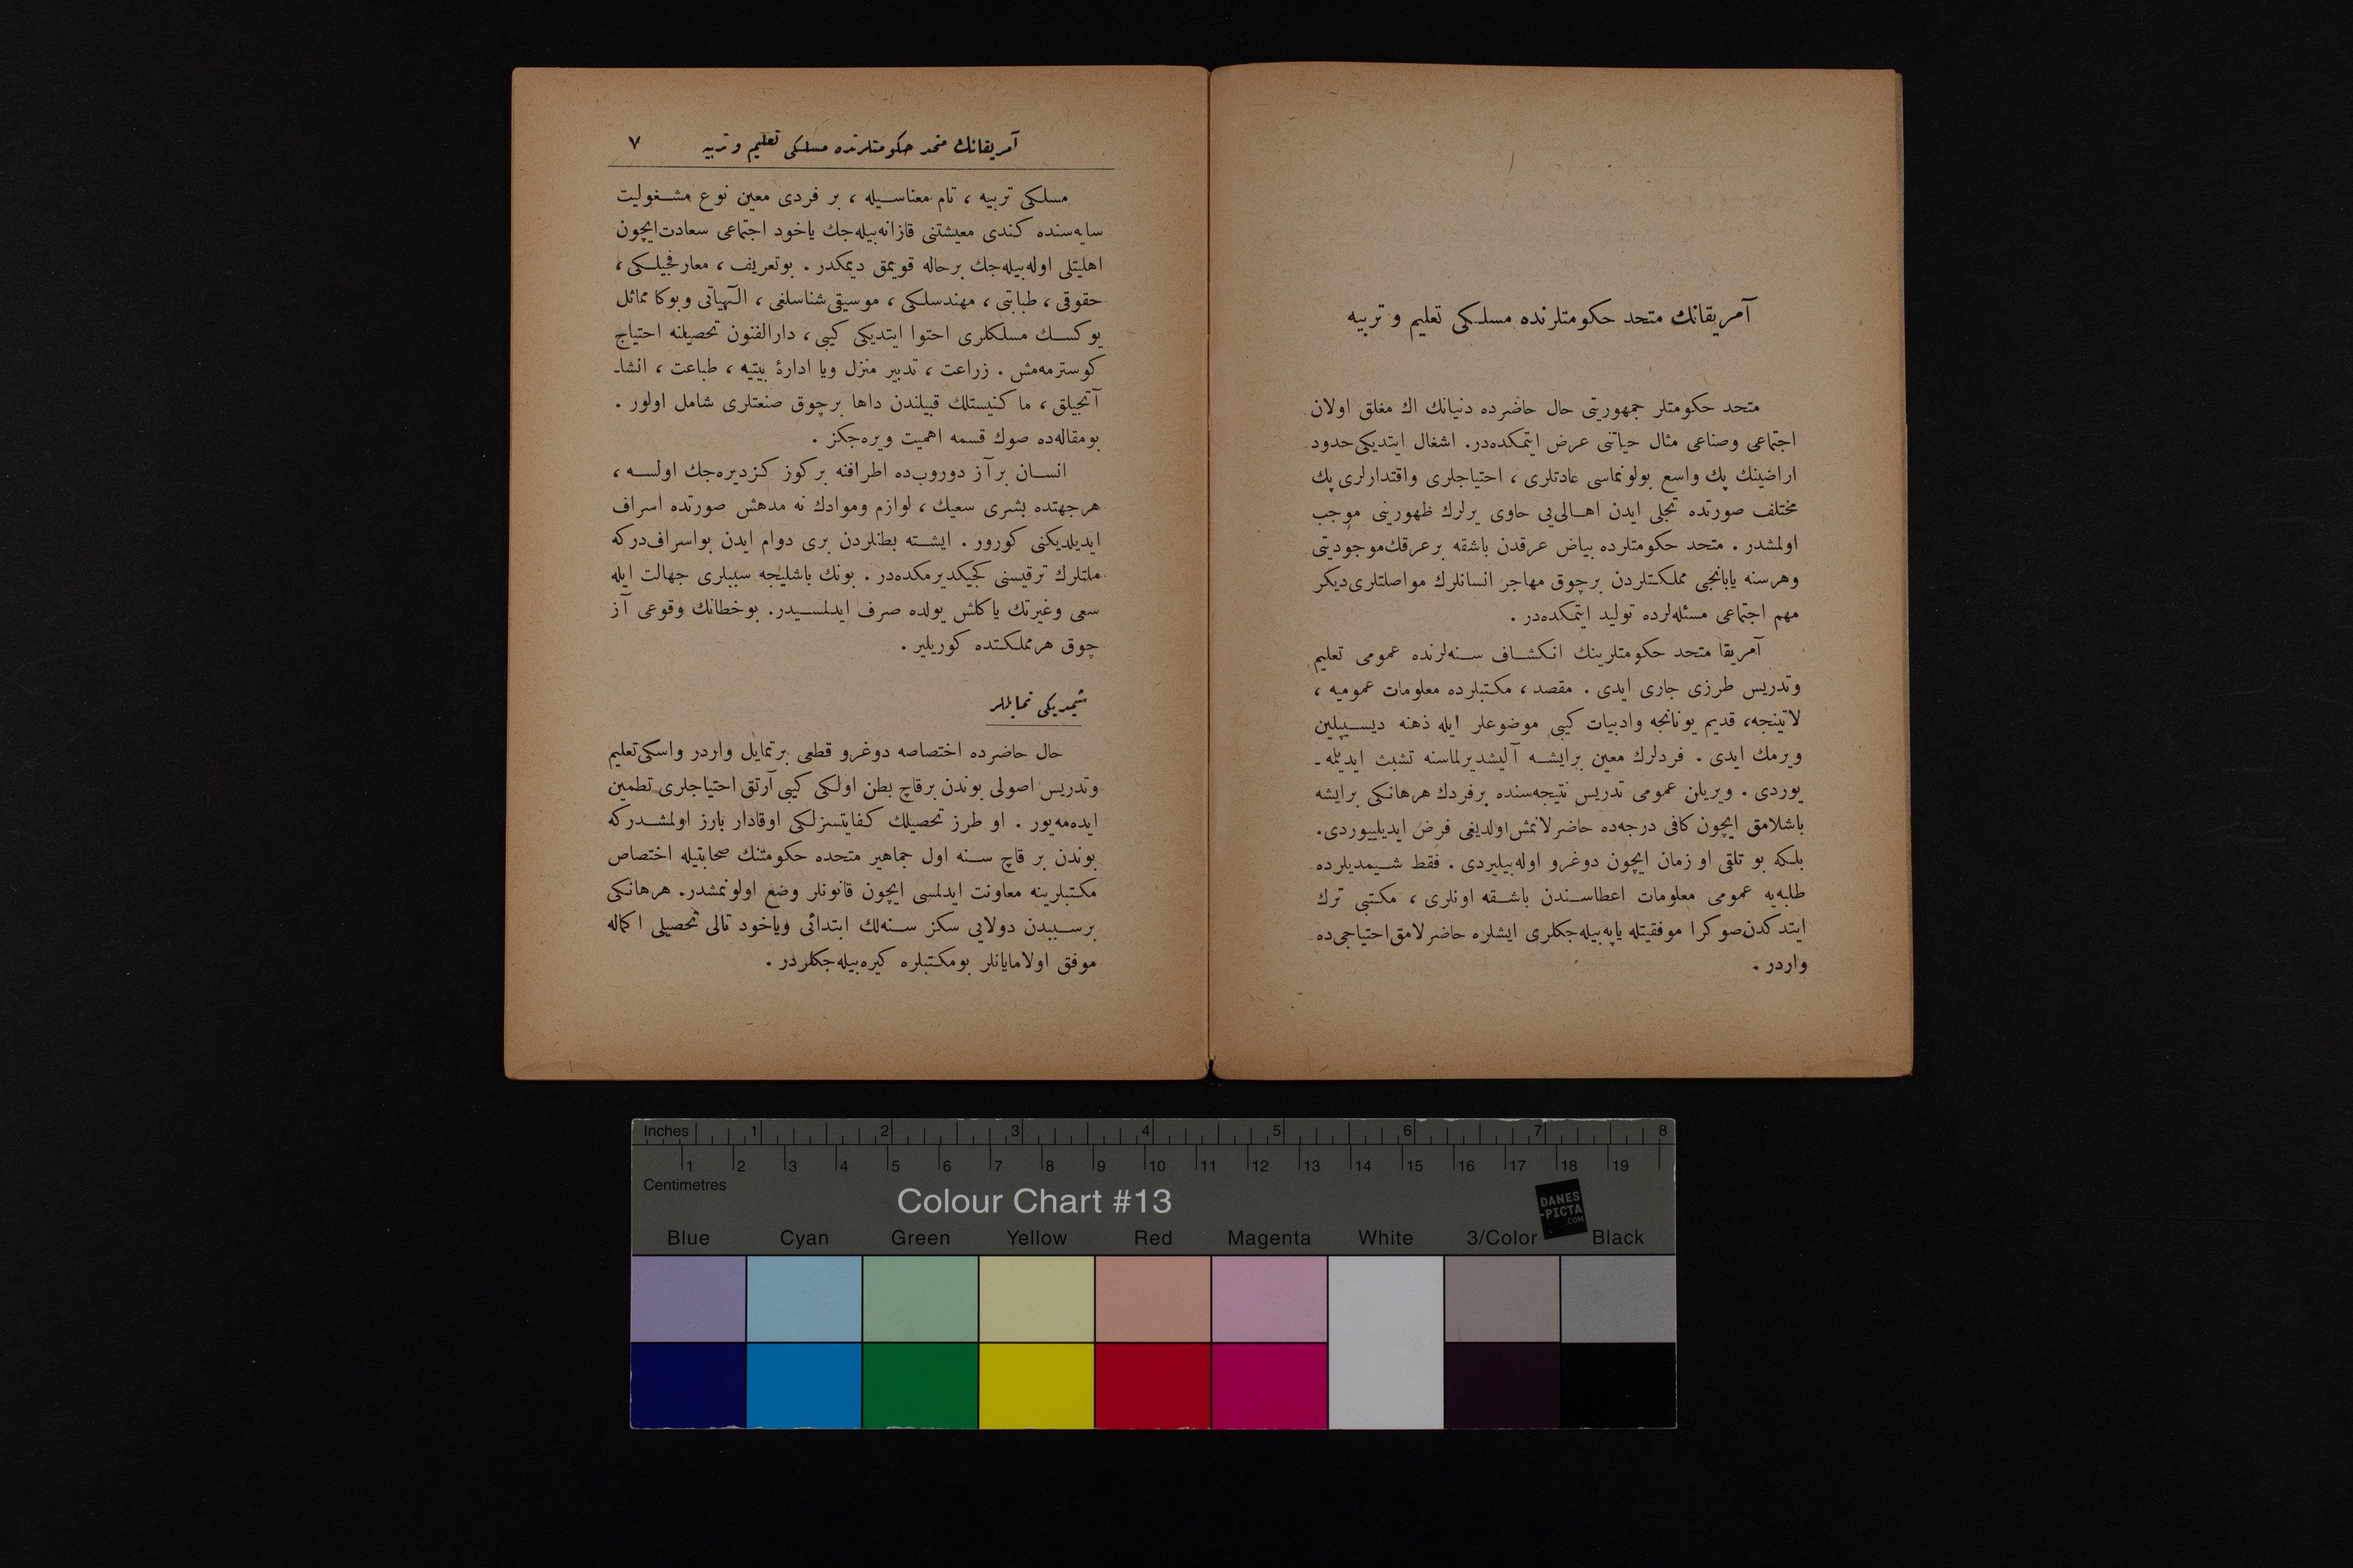 آمریقانك متحد حكومتلرنده مسلكی تعلیم و تربیه
متحد حكومتلر جمهوریتی حال حاضرده دنیانك اك مغلق اولان
اجتماعی وصناعی مثال حیاتنی عرض ایتمكده‌در. اشغال ایتدیكی حدود
اراضینك پك واسع بولونماسی عادتلری ، احتیاجلری واقتدارلری پك
مختلف صورتده تجلی ایدن اهالی‌یی حاوی یرلرك ظهورینی موجب
اولمشدر . متحد حكومتلرده بیاض عرقدن باشقه برعرقك موجودیتی
وهرسنه یابانجی مملكتلردن برچوق مهاجر انسانلرك مواصلتلری دیكر
مهم اجتماعی مسئله‌لرده تولید ایتمكده‌در .
آمریقا متحد حكومتلرینك انكشاف سنه‌لرنده عمومی تعلیم
وتدریس طرزی جاری ایدی . مقصد ، مكتبلرده معلومات عمومیه ،
لاتینجه، قدیم یونانجه وادبیات كیبی موضوعلر ایله ذهنه دیسیپلین
ویرمك ایدی . فردلرك معین برایشه آلیشدیرلماسنه تشبث ایدیلمه ـ
یوردی . ویریلن عمومی تدریس نتیجه‌سنده برفردك هرهانكی برایشه
باشلامق ایچون كافی درجه‌ده حاضرلانمش اولدیغی فرض ایدیلییوردی.
بلكه بو تلقی او زمان ایچون دوغرو اوله‌بیلیردی . فقط شیمدیلرده
طلبه‌یه عمومی معلومات اعطاسندن باشقه اونلری ، مكتبی ترك
ایتدكدن صوكرا موفقیتله یاپه‌بیله‌جكلری ایشلره حاضرلامق احتیاجی ده
واردر .
آمریقانك متحد حكومتلرنده مسلكی تعلیم و تربیه ٧
مسلكی تربیه ، تام معناسیله ، بر فردی معین نوع مشغولیت
سایه‌سنده كندی معیشتنی قازانه‌بیله‌جك یاخود اجتماعی سعادت ایچون
اهلیتلی اوله‌بیله‌جك برحاله قویمق دیمكدر . بوتعریف ، معارفجیلكی ،
حقوقی ، طبابتی ، مهندسلكی ، موسیقی شناسلغی ، الٓهیاتی وبوكا مماثل
یوكسك مسلكلری احتوا ایتدیكی كیبی ، دارالفنون تحصیلنه احتیاج
كوسترمه‌مش . زراعت ، تدبیر منزل ویا ادارهٔ بیتیه ، طباعت ، انشاـ
آتجیلق ، ماكنیستلك قبیلندن داها برچوق صنعتلری شامل اولور .
بومقاله‌ده صوك قسمه اهمیت ویره‌جكز .
انسان برآز دوروب‌ده اطرافنه بركوز كزدیره‌جك اولسه ،
هرجهتده بشری سعیك ، لوازم وموادك نه مدهش صورتده اسراف
ایدیلدیكنی كورور . ایشته بطنلردن بری دوام ایدن بواسراف‌دركه
ملتلرك ترقیسنی كجیكدیرمكده‌در . بونك باشلیجه سببلری جهالت ایله
سعی وغیرتك یاكلش یولده صرف ایدلمسیدر. بوخطانك وقوعی آز
چوق هرمملكتده كوریلیر .
شیمدیكی تمایللر
حال حاضرده اختصاصه دوغرو قطعی برتمایل واردر واسكی تعلیم
وتدریس اصولی بوندن برقاچ بطن اولكی كیبی آرتق احتیاجلری تطمین
ایده‌مه‌یور . او طرز تحصیلك كفایتسزلكی اوقادار بارز اولمشدركه
بوندن بر قاچ سنه اول جماهیر متحده حكومتنك صحابتیله اختصاص
مكتبلرینه معاونت ایدلمسی ایچون قانونلر وضع اولونمشدر. هرهانكی
برسببدن دولایی سكز سنه‌لك ابتدائی ویاخود تالی تحصیلی اكماله
موفق اولامایانلر بومكتبلره كیره‌بیله‌جكلردر .
Inches 1 2 3 4 5 6 7 8
1 2 3 4 5 6 7 8 9 10 11 12 13 14 15 16 17 18 19
Centimetres
Colour Chart #13
DANES
-PICTA
.COM
Blue Cyan Green Yellow Red Magenta White 3/Color Black